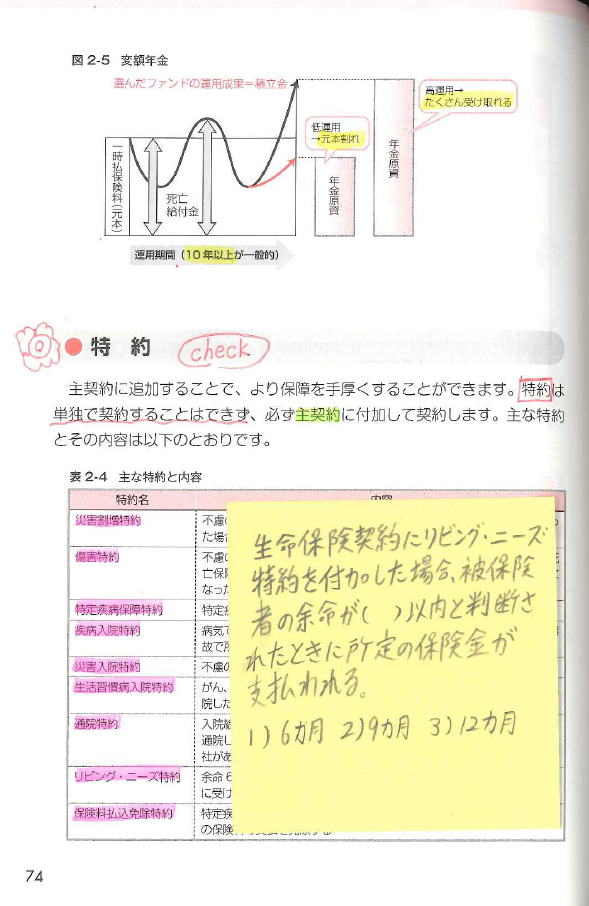 図2-5 変額年金
選んだファンドの運用成果＝積立金
高運用→
たくさん受け取れる
低運用
→元本割れ
一時払保険料(元本)
死亡
給付金
年金原資
年金原資
運用期間（10年以上が一般的）
特約
check
主契約に追加することで、より保障を手厚くすることができます。特約は
単独で契約することはできず、必ず主契約に付加して契約します。主な特約
とその内容は以下のとおりです。
表2-4 主な特約と内容
特約名
災害割増特約 不慮
た場
傷害特約 不慮
亡保
なっ
特定疾病保障特約 特定疾
疾病入院特約 病気で
故で
災害入院特約 不慮の
生活習慣病入院特約 がん、
院した
通院特約 入院給
通院し
社があ
リビング・ニーズ特約 余命6
に受け
保険料払込免除特約 特定疾
の保険
生命保険契約にリビング・ニーズ
特約を付加した場合、被保険
者の余命が( )以内と判断さ
れたときに所定の保険金が
支払われる。
1)6カ月 2)9カ月 3)12カ月
74